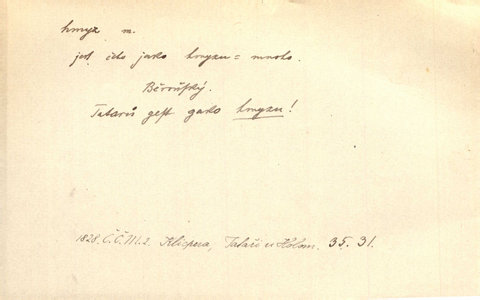 hmyz m.
jest čeho jako hmyzu = mnoho.
Běrovský.
Tatarů gest gako hmyzu!
1828. Č.Č.M. 2. Klicpera, Tataři u Holom. 35. 31.